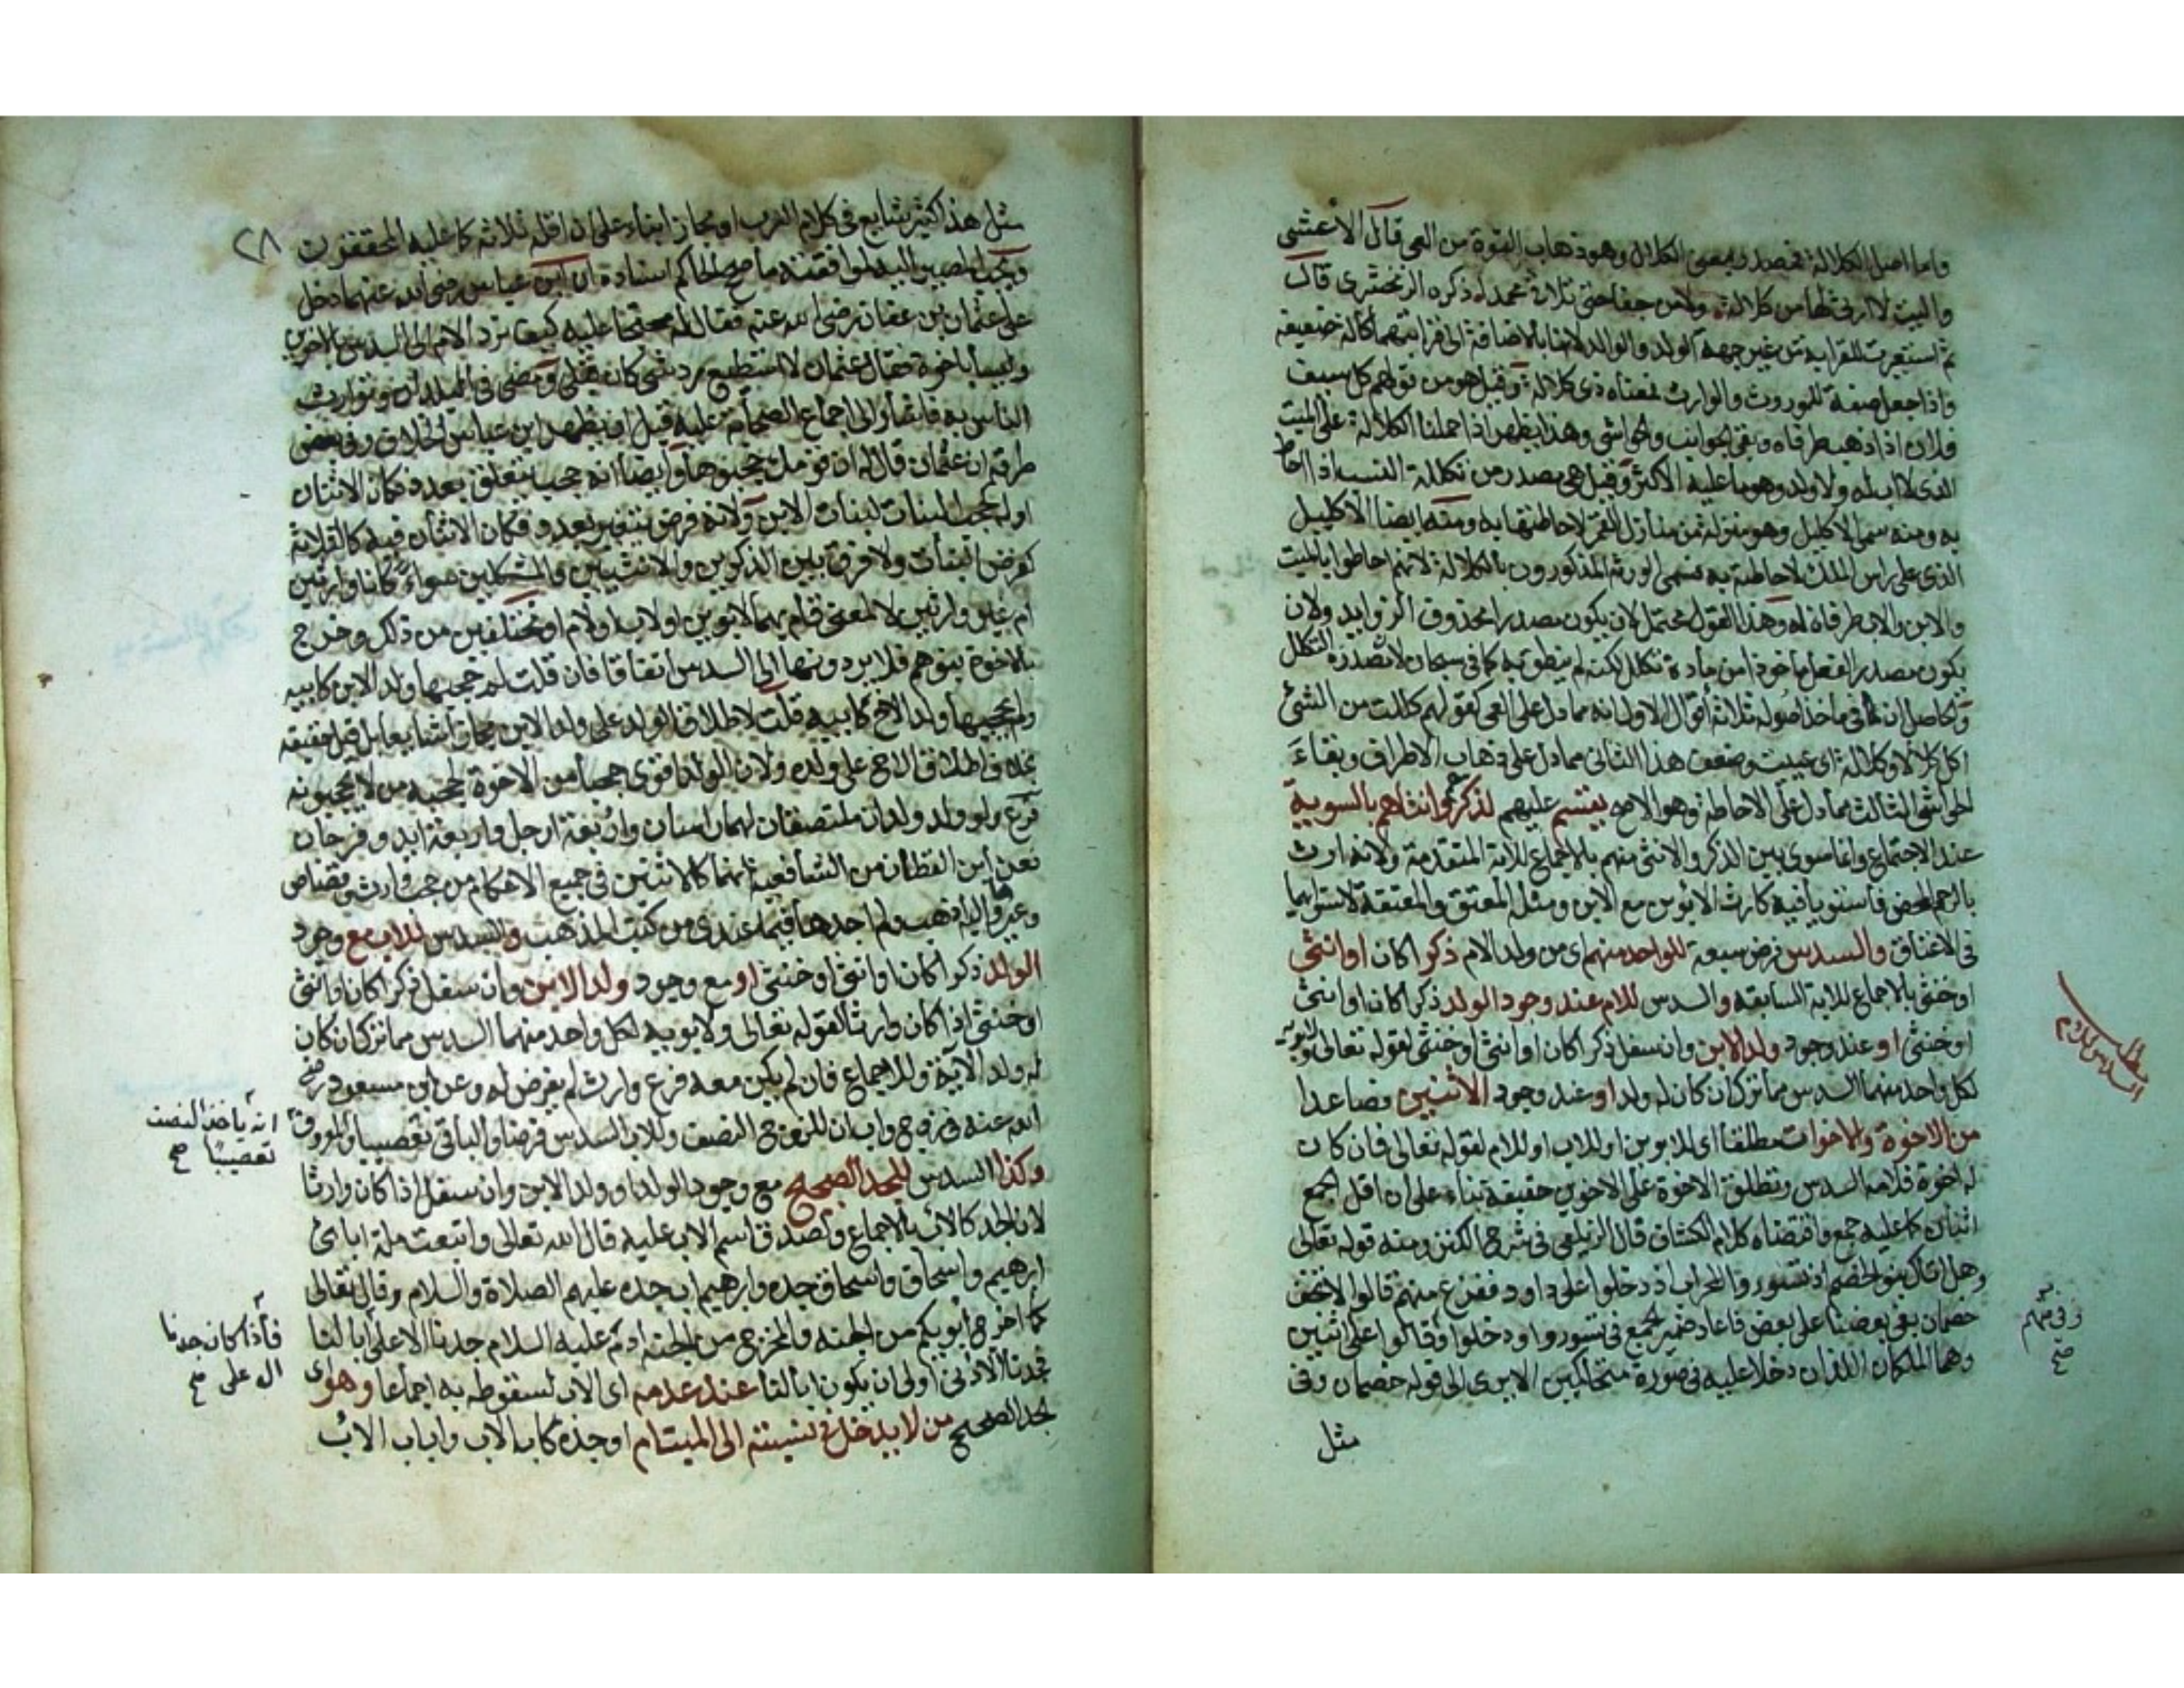 واما اصل الكلالة فمصدر بمعنى الكلال وهو ذهاب القوة من العي قال الاعشى
واليت لا ارثي لها من كلالة ولا من حفا حتى تلاقي محمدا ذكره الزمخشري قال
ثم استعيرت للقرابة من غير جهة الولد والوالد لانها بالاضافة الى قرابتهما كالة ضعيفه
واذا جعل صفة للموروث والوارث فمعناه ذي كلالة وقيل هو من قولهم كل سيف
فلان اذا ذهب طرفاه وبقي الجوانب والحواشي وهذا يظهر اذا حملنا الكلالة على الميت
الذي لا اب له ولا ولد وهو ما عليه الاكثر وقيل هي مصدر من تكلله النسب اذا احاط
به ومنه سمي الاكليل وهو منزلة من منازل القمر لاحاطتها به ومنه ايضا الاكليل
الذي على راس الملك لاحاطته به فسمي الورثة المذكورون بالكلالة لانهم احاطوا بالميت
والابن والاب طرفان له وهذا القول محتمل لان يكون مصدرا محذوف الزوايد ولان
يكون مصدر الفعل ماخوذا من مادة تكلل لكنه لم ينطق به كما في سبحان لا تصدره التكلل
والحاصل ان في ماخذ اصوله ثلاثة اقوال الاول انه مما دل على العي كقولهم كللت من الشئ
اكل كلالا وكلالة اي عييت وضعفت هذا الثاني مما دل على ذهاب الاطراف وبقاء
الحواشي الثالث مما دل على الاحاطة وهو الاصح يقسم عليهم لذكرهم وانثاهم بالسوية
عند الاجتماع وانما سوي بين الذكر والانثى منهم بالاجماع للاية المتقدمة ولانه ارث
بالرحم المحض فاستويا فيه كارث الابوين مع الابن ومثله المعتق والمعتقة لاستوايهما
في الاعتاق والسدس فرض سبعة للواحد منهم اي من ولد الام ذكرا كان او انثى
او خنثى بالاجماع للاية السابقة والسدس للام عند وجود الولد ذكرا كان او انثى
او خنثى او عند وجود ولد الابن وان سفل ذكرا كان او انثى او خنثى لقوله تعالى ولابويه
لكل واحد منهما السدس مما ترك ان كان له ولد او عند وجود الاثنين فصاعدا
من الاخوة والاخوات مطلقا اي للابوين او للاب او للام لقوله تعالى فان كان
له اخوة فلامه السدس وتطلق الاخوة على الاخوين حقيقة بناء على ان اقل الجمع
اثنان كما عليه جمع واقتضاه كلام الكشاف قال الزيلعي في شرح الكنز ومنه قوله تعالى
وهل اتاك نبؤ الخصم اذ تسوروا المحراب اذ دخلوا على داود ففزع منهم قالوا لا تخف
خصمان بغى بعضنا على بعض فاعاد ضمير الجمع في تسوروا ودخلوا وقالوا على اثنين
وهما الملكان اللذان دخلا عليه في صورة متحاكمين الا يرى الى قوله خصمان وفي
مثل
مطلب
السدس للام
وفي منهم
صح
٢٨
مثل هذا كثير شايع في كلام العرب او مجازا بناء على ان اقله ثلاثة كما عليه المحققون
ويجب المصير اليه لموافقته ما صحح الحاكم اسناده ان ابن عباس رضي الله عنهما دخل
على عثمان بن عفان رضي الله عنه فقال له محتجا عليه كيف ترد الام الى السدس بالاخوين
وليسا باخوة فقال عثمان لا استطيع رد شئ كان قبلي ومضى في البلدان وتوارث
الناس به فاشار الى اجماع الصحابة عليه قبل ان يظهر ابن عباس الخلاف وفي بعض
طرقه ان عثمان قال له ان قومك حجبوها وايضا انه حجب يتعلق بعدد فكان الاثنان
اوله كحجب البنات لبنات الابن ولانه فرض يتغير بعدد فكان الاثنان فيه كالثلاثة
كفرض البنات ولا فرق بين الذكرين والانثيين والمشكلين سواء كانا وارثين
ام غير وارثين لا لمعنى قام بهما لابوين او لاب او لام او مختلفين من ذلك وخرج
بالاخوة بنوهم فلا يردونها الى السدس اتفاقا فان قلت لم حجبها ولد الابن كابيه
ولم يحجبها ولد الاخ كابيه قلت لاطلاق الولد على ولد الابن مجازا شايعا بل قيل حقيقة
بخلاف اطلاق الاخ على ولده ولان الولد اقوى حجبا من الاخوة لحجبه من لا يحجبونه
فرع ولو ولد ولدان ملتصقان لهما راسان واربعة ارجل واربعة ايد وفرجان
فعن ابن القطان من الشافعية انهما كالاثنين في جميع الاحكام من حجب وارث وقصاص
وغيرها واليه اذهب ولم اجدها فيما عندي من كتب المذهب والسدس للاب مع وجود
الولد ذكرا كان او انثى او خنثى او مع وجود ولد الابن وان سفل ذكرا كان او انثى
او خنثى اذا كان وارثا لقوله تعالى ولابويه لكل واحد منهما السدس مما ترك ان كان
له ولد الاية وللاجماع فان لم يكن معه فرع وارث لم يفرض له وعن ابن مسعود رضي
الله عنه في زوج واب ان للزوج النصف وللاب السدس فرضا والباقي تعصيبا والمعروف
وكذا السدس للجد الصحيح مع وجود الولد او ولد الابن وان سفل اذا كان وارثا
لان الجد كالاب بالاجماع ولصدق اسم الاب عليه قال الله تعالى واتبعت ملة ابائي
ابرهيم واسحاق واسحاق جده وابرهيم اب جده عليهم الصلاة والسلام وقال تعالى
كما اخرج ابويكم من الجنة والمخرج من الجنة ادم عليه السلام جدنا الاعلى ابا لنا
فجدنا الادنى اولى ان يكون ابا لنا عند عدمه اي الاب لسقوطه به اجماعا وهو اي
الجد الصحيح من لا يدخل في نسبته الى الميت ام او جدة كاب الاب واباب الاب
انه ياخذ النصف
تعصيبا صح
فاذا كان جدنا
الاعلى صح